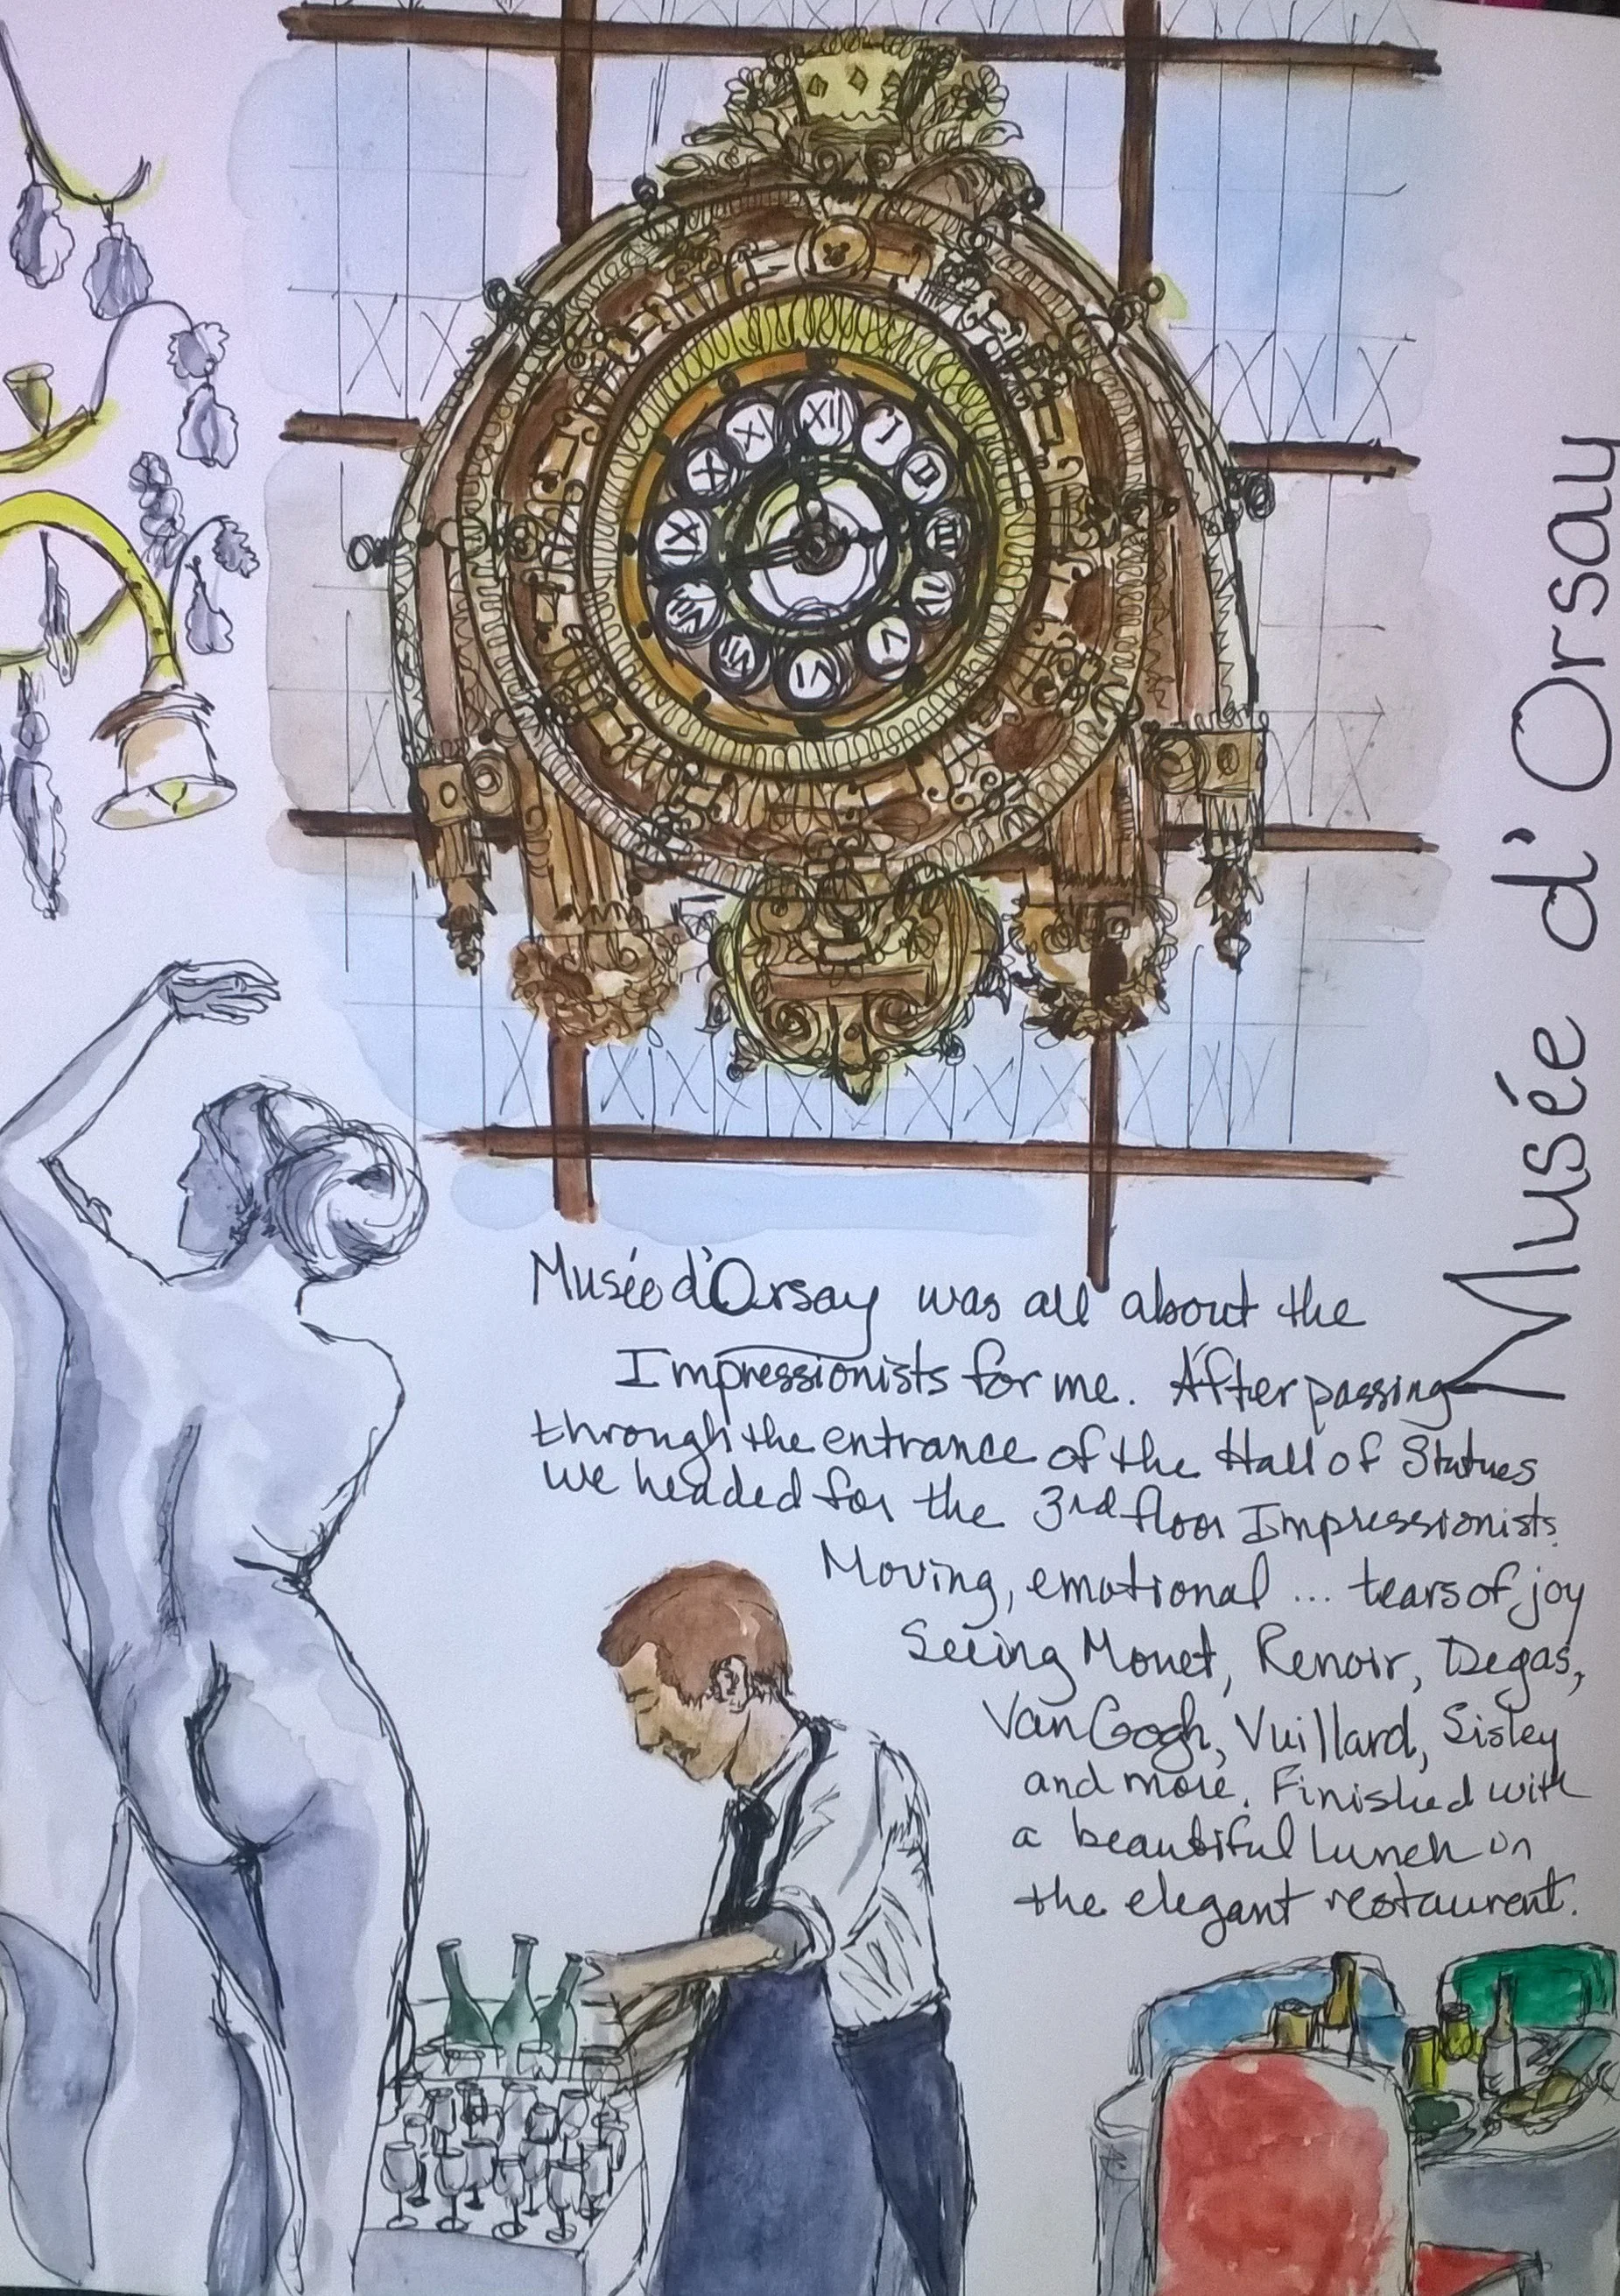 XII
I
II
III
IV
V
VI
VII
VIII
IX
X
XI
Musée d'Orsay
Musée d'Orsay was all about the
Impressionists for me. After passing
through the entrance of the Hall of Statues
we headed for the 3rd floor Impressionists.
Moving, emotional ... tears of joy
Seeing Monet, Renoir, Degas,
Van Gogh, Vuillard, Sisley
and more. Finished with
a beautiful lunch in
the elegant restaurent.